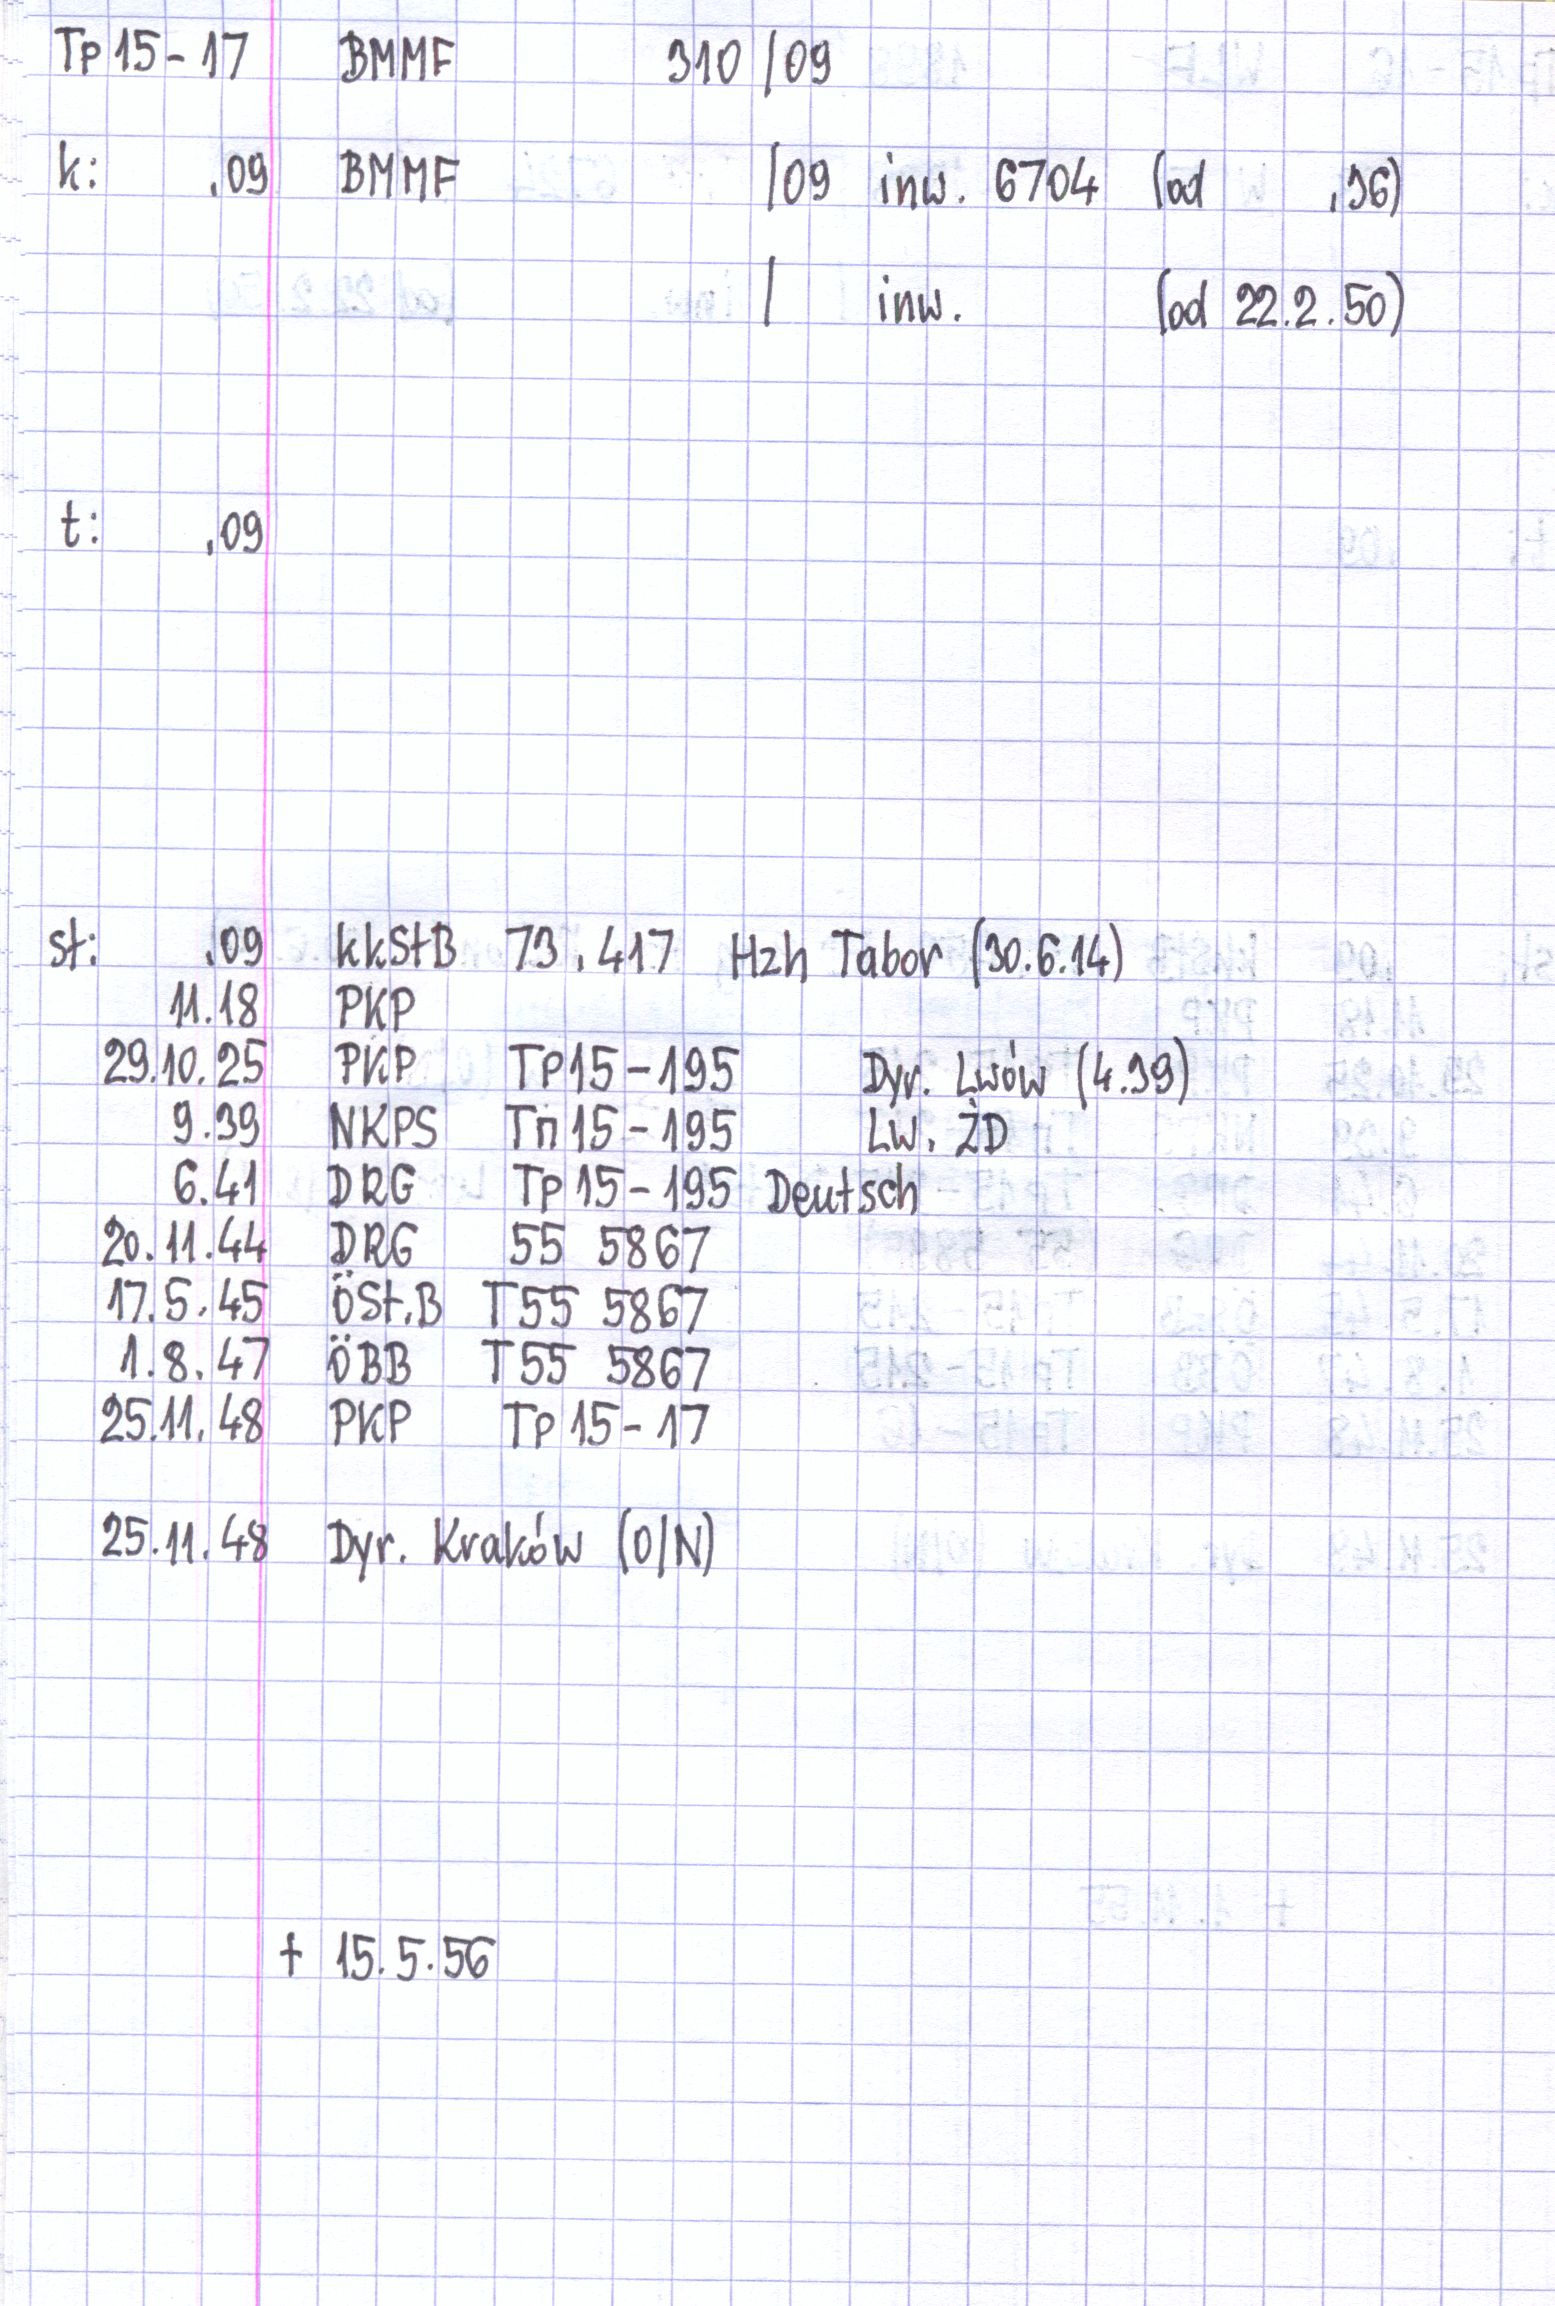 Tp 15-17 BMMF 310 /09
k: .09 BMMF /09 inw. 6704 (od .36)
/ inw. (od 22.2.50)
t: .09
st: .09 kkStB 73.417 Hzh Tabor (30.6.14)
11.18 PKP
29.10.25 PKP Tp15-195 Dyr. Lwów (4.39)
9.39 NKPS Tп15-195 Lw. ŻD
6.41 DRG Tp15-195 Deutsch
20.11.44 DRG 55 5867
17.5.45 ÖSt.B T55 5867
1.8.47 ÖBB T55 5867
25.11.48 PKP Tp15-17
25.11.48 Dyr. Kraków (O/N)
+ 15.5.56